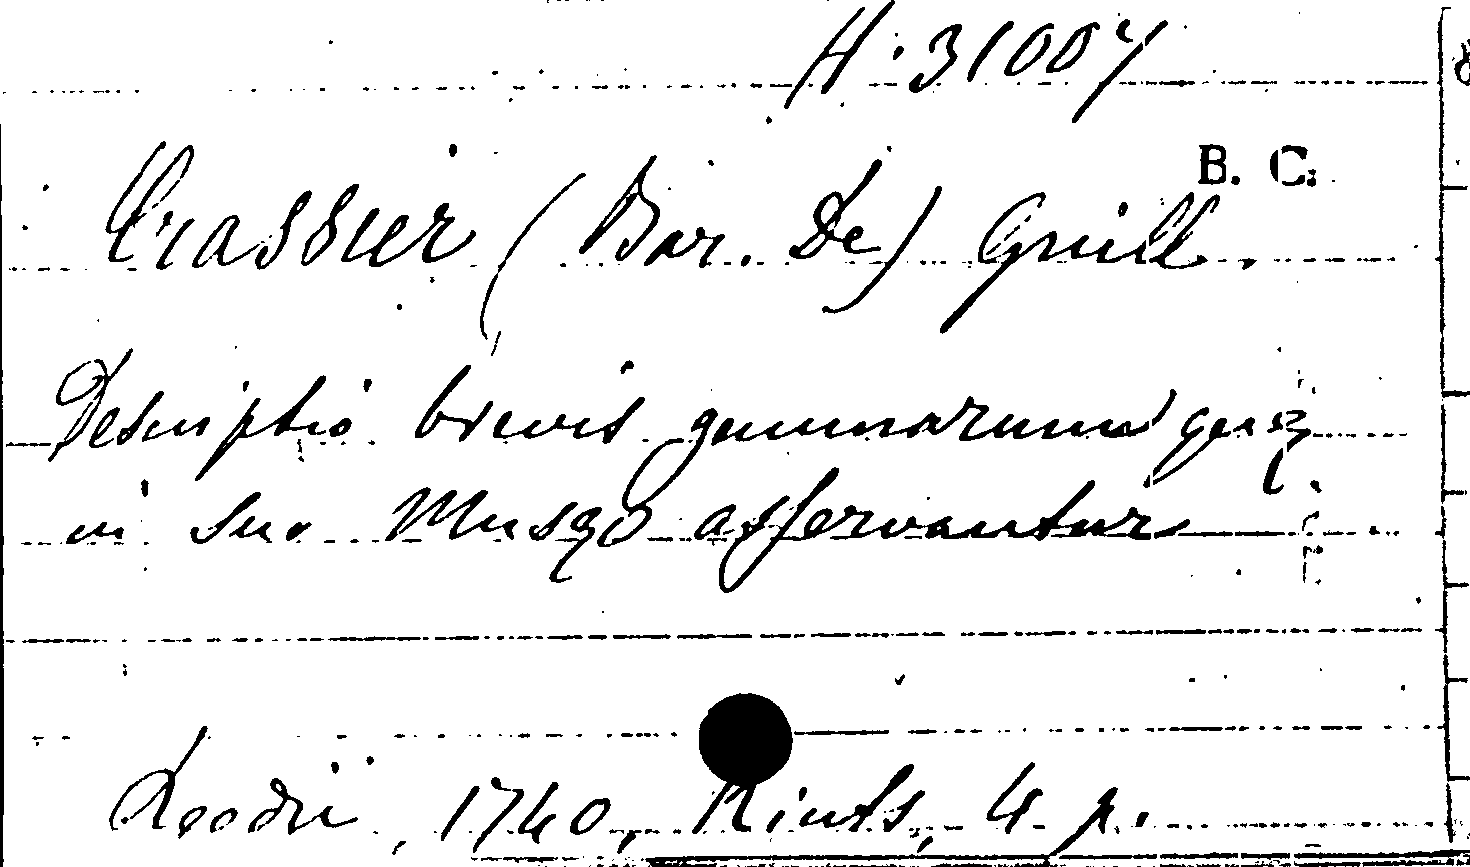 H. 31007
B. C.
Crassier (Bar. De) Guill.
Descriptio brevis gemmarum quę
in suo Musęo asservantur
Leodii, 1740, Kints, 4 p.